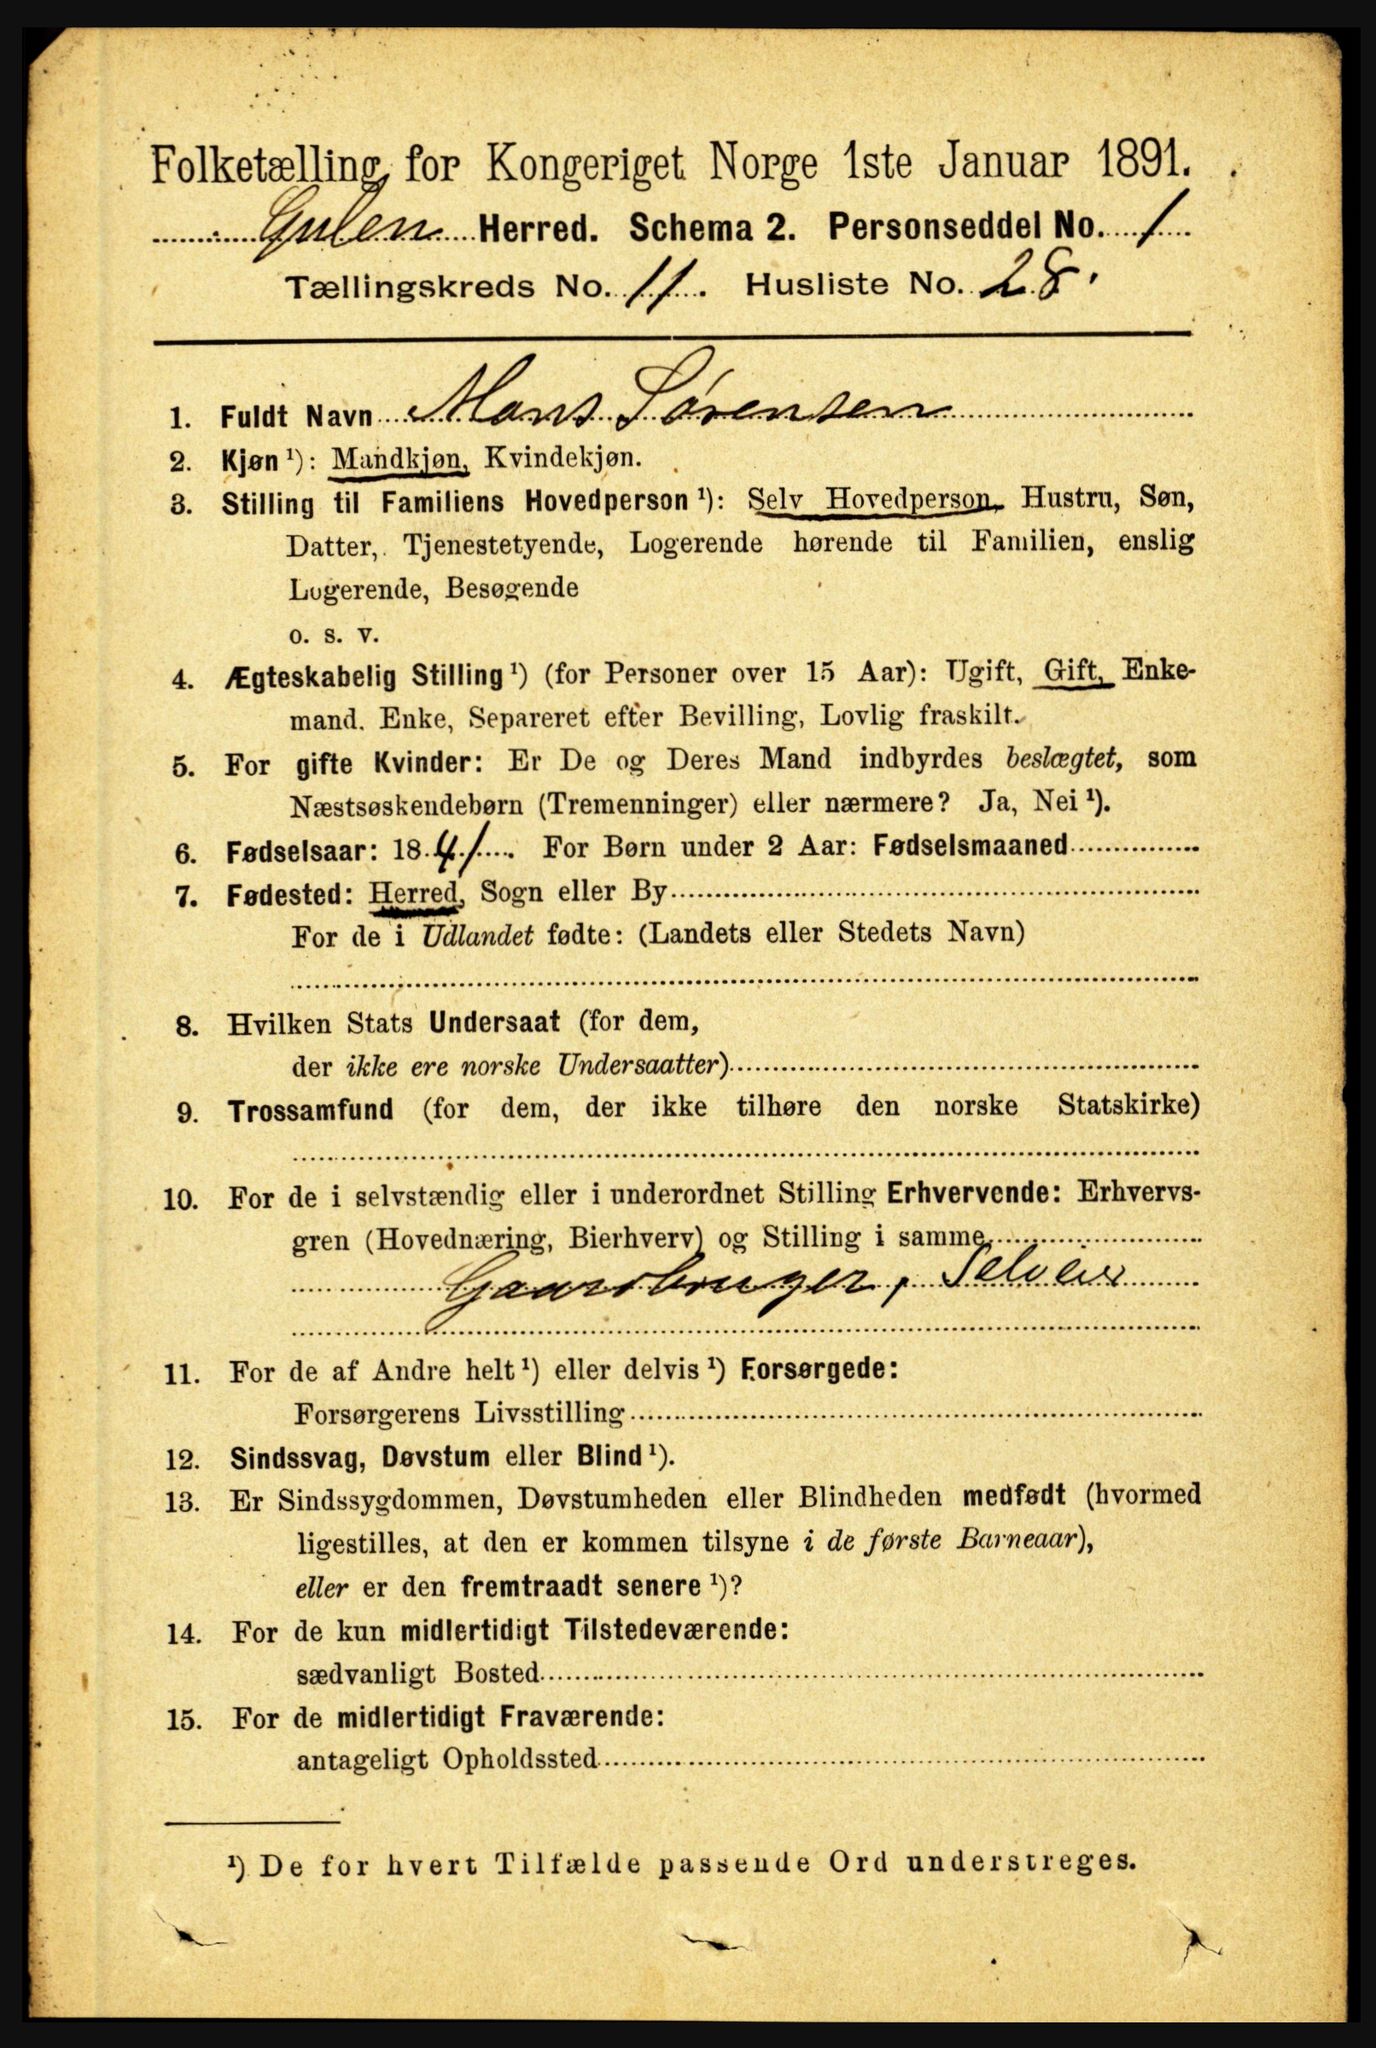 Folketælling for Kongeriget Norge 1ste Januar 1891.
Gulen Herred. Schema 2. Personseddel No. 1
Tællingskreds No. 11. Husliste No. 28.
1. Fuldt Navn Mons Sørensen
2. Kjøn ¹): Mandkjøn, Kvindekjøn.
3. Stilling til Familiens Hovedperson ¹): Selv Hovedperson, Hustru, Søn,
Datter, Tjenestetyende, Logerende hørende til Familien, enslig
Logerende, Besøgende
o. s. v.
4. Ægteskabelig Stilling ¹) (for Personer over 15 Aar): Ugift, Gift, Enke-
mand. Enke, Separeret efter Bevilling, Lovlig fraskilt.
5. For gifte Kvinder: Er De og Deres Mand indbyrdes beslægtet, som
Næstsøskendebørn (Tremenninger) eller nærmere? Ja, Nei ¹).
6. Fødselsaar: 1841. For Børn under 2 Aar: Fødselsmaaned
7. Fødested: Herred, Sogn eller By
For de i Udlandet fødte: (Landets eller Stedets Navn)
8. Hvilken Stats Undersaat (for dem,
der ikke ere norske Undersaatter)
9. Trossamfund (for dem, der ikke tilhøre den norske Statskirke)
10. For de i selvstændig eller i underordnet Stilling Erhvervende: Erhvervs-
gren (Hovednæring, Bierhverv) og Stilling i samme
Gaardbruger, Selveier
11. For de af Andre helt ¹) eller delvis ¹) Forsørgede:
Forsørgerens Livsstilling
12. Sindssvag, Døvstum eller Blind ¹).
13. Er Sindssygdommen, Døvstumheden eller Blindheden medfødt (hvormed
ligestilles, at den er kommen tilsyne i de første Barneaar),
eller er den fremtraadt senere ¹)?
14. For de kun midlertidigt Tilstedeværende:
sædvanligt Bosted
15. For de midlertidigt Fraværende:
antageligt Opholdssted
¹) De for hvert Tilfælde passende Ord understreges.